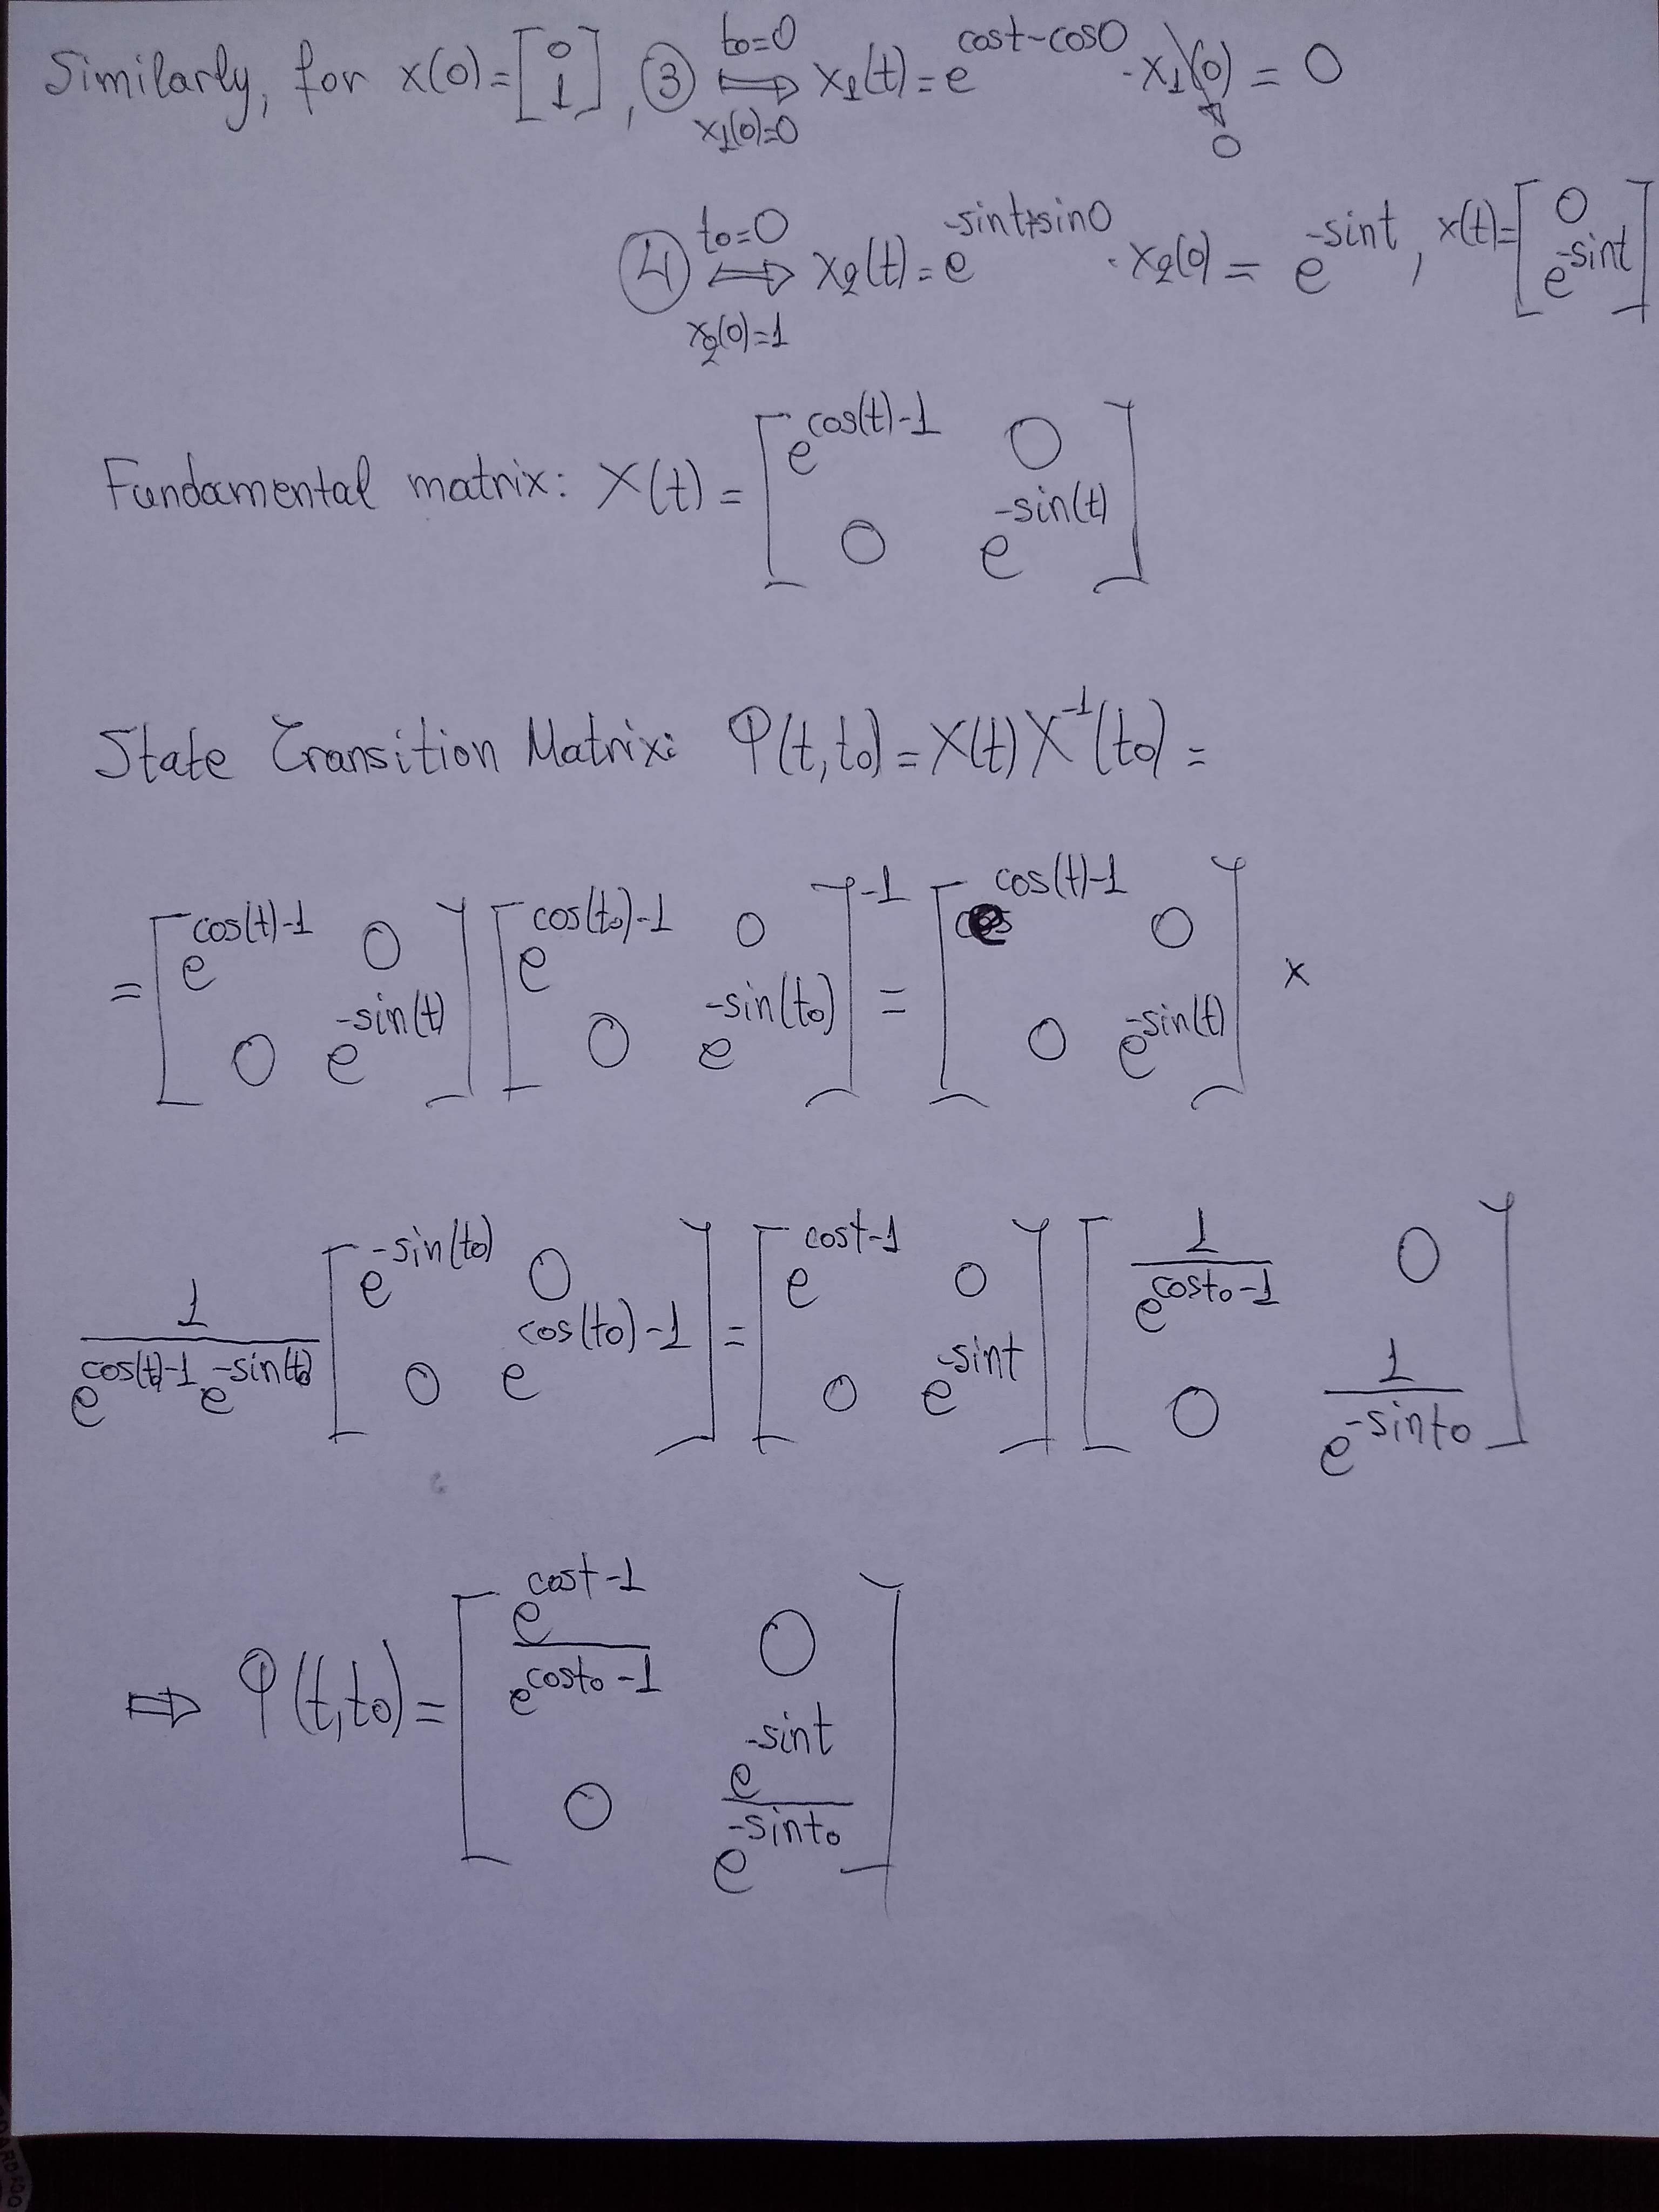 Similarly, for x(0)=[0 1], ③ ⟹ (t0=0, x1(0)=0) x1(t)=e^(cost-cos0) · x1(0) = 0
0
④ ⟹ (t0=0, x2(0)=1) x2(t)=e^(-sint+sin0) · x2(0) = e^(-sint), x(t)=[0 e^(-sint)]
Fundamental matrix: X(t)=[e^(cos(t)-1) 0; 0 e^(-sin(t))]
State Transition Matrix: φ(t,t0)=X(t)X^-1(t0)=
=[e^(cos(t)-1) 0; 0 e^(-sin(t))] [e^(cos(t0)-1) 0; 0 e^(-sin(t0))]^-1 = [e^(cos(t)-1) 0; 0 e^(-sin(t))] x
1/(e^(cos(t0)-1) e^(-sin(t0))) [e^(-sin(t0)) 0; 0 e^(cos(t0)-1)] = [e^(cost-1) 0; 0 e^(-sint)] [1/e^(cost0-1) 0; 0 1/e^(-sint0)]
⟹ φ(t,t0)=[e^(cost-1)/e^(cost0-1) 0; 0 e^(-sint)/e^(-sint0)]